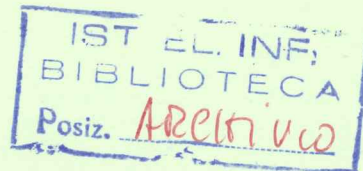 IST EL. INF.
BIBLIOTECA
Posiz. ARCHIVIO